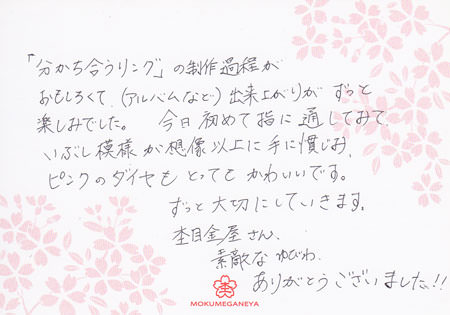 「分かち合うリング」の制作過程が
おもしろくて、(アルバムなど) 出来上がりが ずっと
楽しみでした。 今日 初めて 指に 通してみて
いぶし模様が想像以上に手に慣じみ、
ピンクのダイヤも とっても かわいいです。
ずっと 大切に していきます。
杢目金屋さん、
素敵な ゆびわ、
ありがとう ございました!!
MOKUMEGANEYA